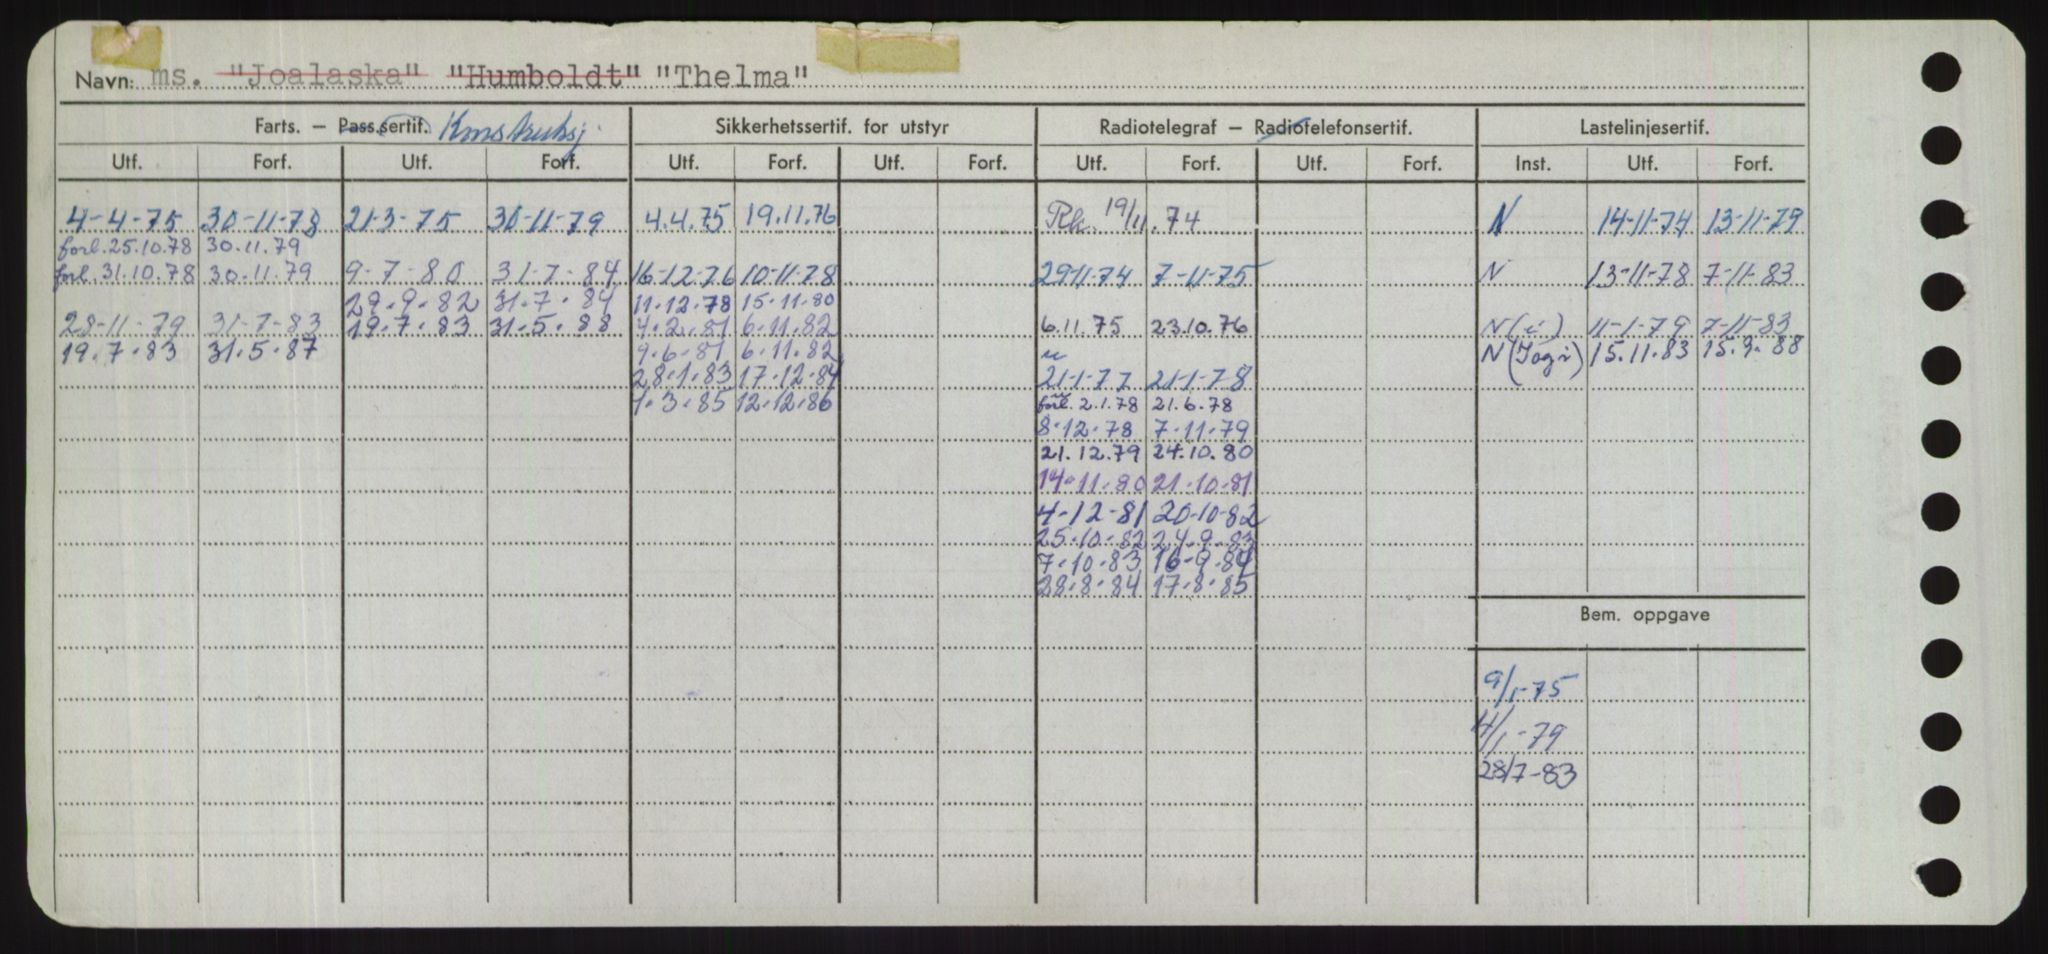 Navn: ms. "Joalaska" "Humboldt" "Thelma"
Farts. — Pass.sertif. Konstruksj. Sikkerhetssertif. for utstyr Radiotelegraf — Radiotelefonsertif. Lastelinjesertif.
Utf. Forf. Utf. Forf. Utf. Forf. Utf. Forf. Utf. Forf. Utf. Forf. Inst. Utf. Forf.
4-4-75 30-11-78 21-3-75 30-11-79 4.4.75 19.11.76 Rk. 19/11.74 N 14-11-74 13-11-79
forl. 25.10.78 30.11.79
forl. 31.10.78 30.11.79 9-7-80 31-7-84 16-12-76 10-11-78 29-11-74 7-11-75 N 13-11-78 7-11-83
29.9.82 31.7.84 11.12.78 15.11.80
28-11-79 31-7-83 19.7.83 31.5.88 4.2.81 6.11.82 6.11.75 23.10.76 N(i) 11-1-79 7-11-83
19.7.83 31.5.87 9.6.81 6.11.82 N(Iogi) 15.11.83 15.9.88
28.1.83 17.12.84 21-1-77 21-1-78
1.3.85 12.12.86 forl. 2.1.78 21.6.78
8.12.78 7.11.79
21.12.79 24.10.80
14.11.80 21.10.81
4-12-81 20-10-82
25.10.82 24.9.83
7.10.83 16.9.84
28.8.84 17.8.85
Bem. oppgave
9/1-75
4/1-79
28/7-83